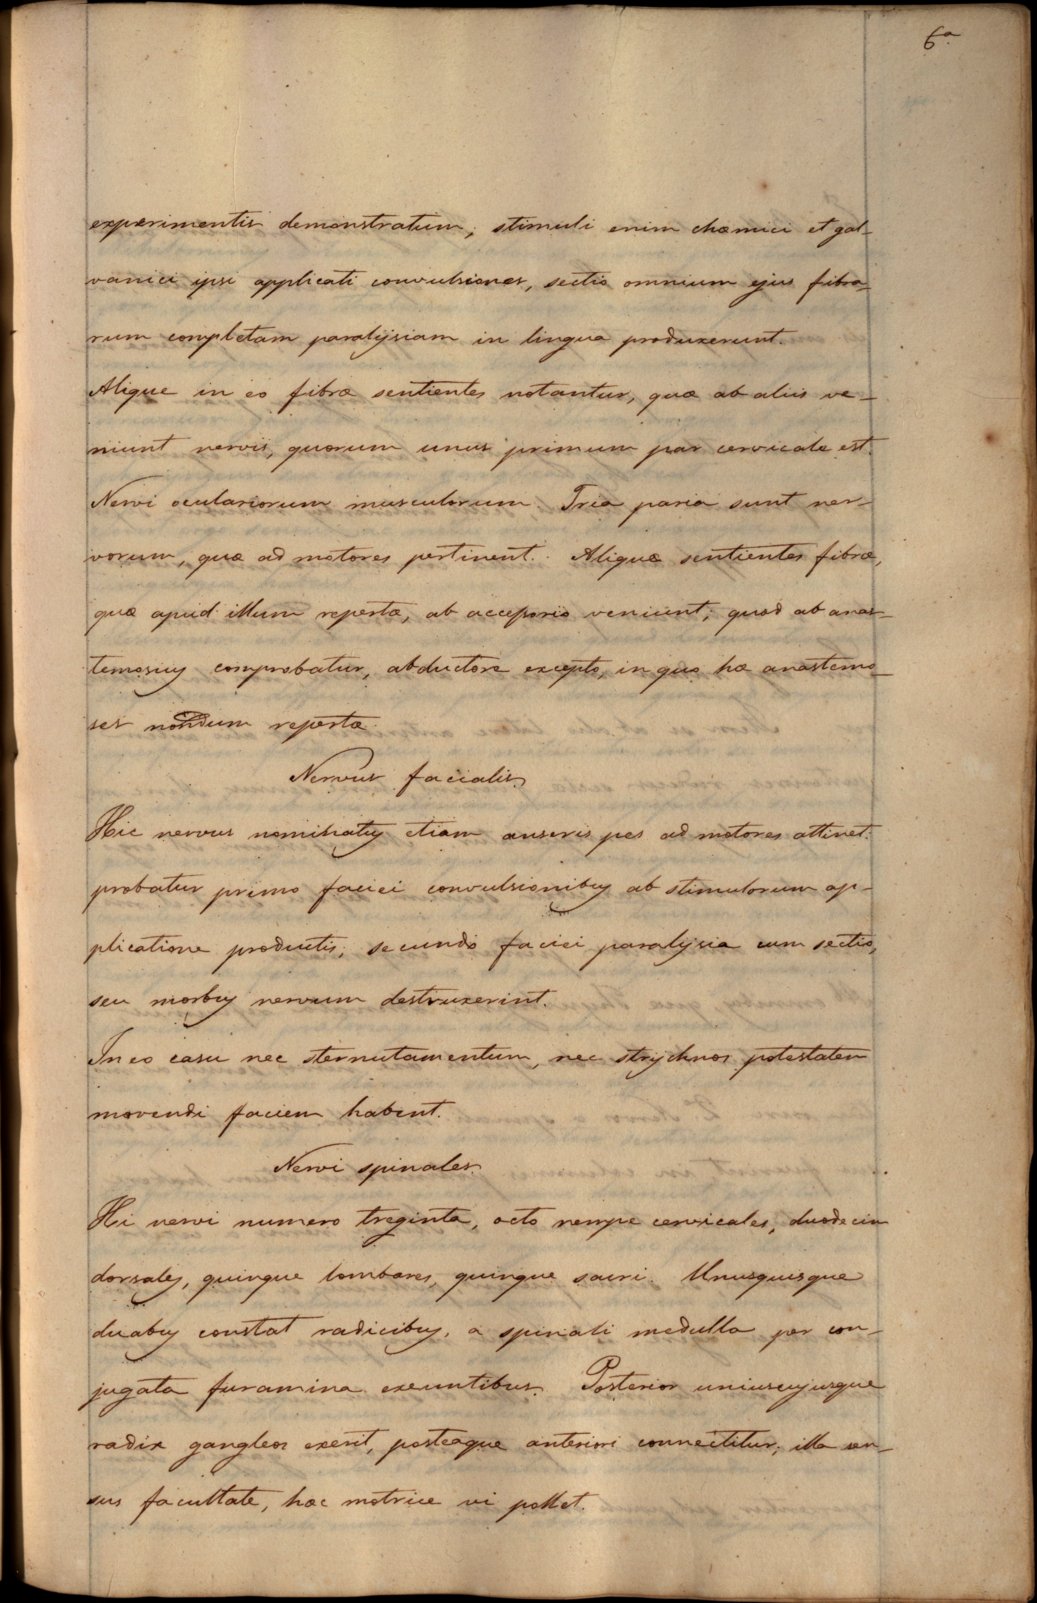 6ª
experimentis demonstratum; stimuli enim chæmici et gal-
vanici ipsi applicati convulsiones, sectio omnium ejus fibra-
rum completam paralysiam in lingua produxerunt.
Alique in eo fibræ sentientes notantur, quæ ab aliis ve-
niunt nervis, quorum unus primum par cervicale est.
Nervi oculariorum musculorum. Tria paria sunt ner-
vorum, quæ ad motores pertinent. Aliquæ sentientes fibræ,
quæ apud illum repertæ, ab accessorio veniunt; quod ab anas-
temosuy comprobatur, abductore excepto, in quo hæ anastemo-
ses nondum repertæ.
Nervus facialis
Hic nervus nominatuy etiam anseris pes ad motores attinet.
probatur primo faciei convulsionibuy ab stimulorum ap-
plicatione productis; secundo faciei paralysia cum sectio,
seu morbuy nervum destruxerint.
In eo casu nec sternutamentum, nec strychnos potestatem
movendi faciem habent.
Nervi spinales.
Hi nervi numero treginta, octo nempe cervicales, duodecim
dorsales, quinque lombares, quinque sacri. Unusquisque
duabuy constat radicibuy, a spinali medulla per con-
jugata furamina exeuntibus. Posterior uniuscujusque
radix gangleos exerit, posteaque anteriori connectitur; illa sen-
sus facultate, hæc motrice vi pollet.